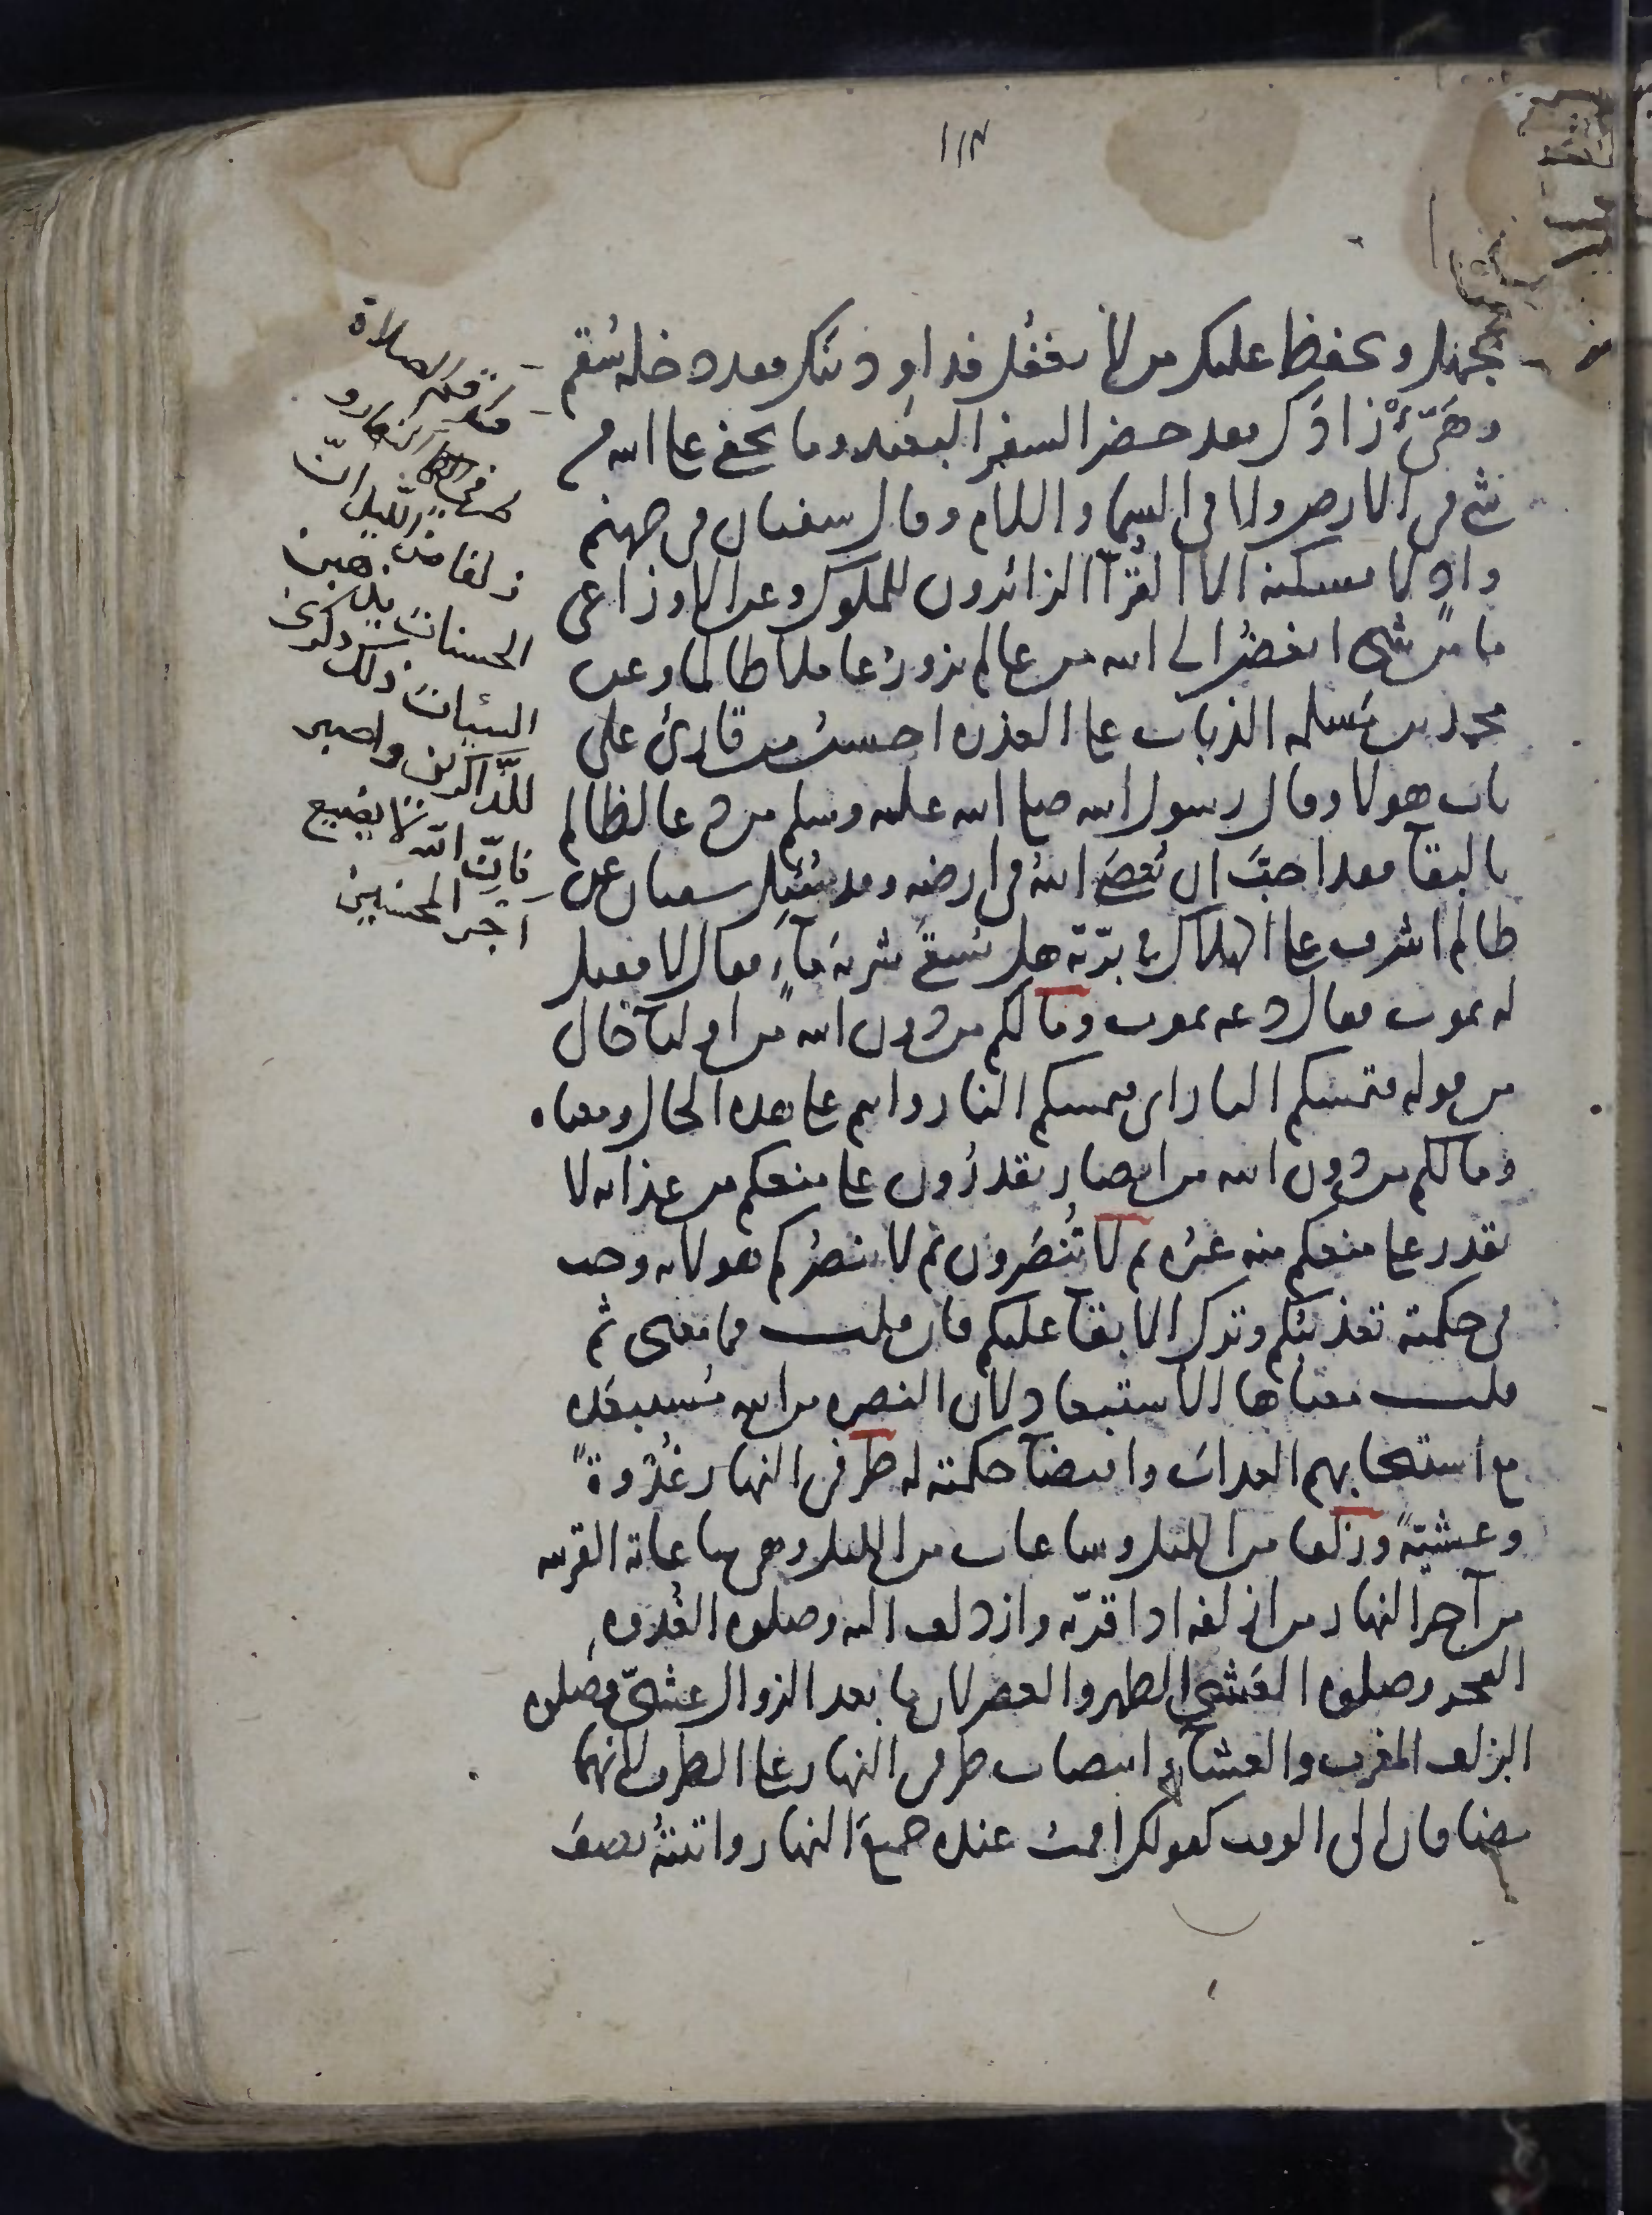 ١١٣
يجهل ويحفظ عليك من لا يغفل فداو دينك فقد دخله سُقم
وهَيّئْ زادَك فقد حضر السفر البعيد وما يخفى على الله من
شيْ في الارض ولا في السما والسلام وقال سفيان في جهنم
واد لا يسكنه الا القُرّآ الزائرون للملوك وعن الاوزاعي
ما من شيء ابغضُ الى الله من عالم يزورُ عاملا ظالما وعن
محمد بن مَسلمه الذباب على العذره احسنُ من قارئ على
باب هولا وقال رسول الله صلى الله عليه وسلم من دعا لظالم
بالبقآ فقد احبّ ان يُعصَى اللهُ في ارضه وقد سُئِل سفيان عن
ظالم اشرف على الهلاك في برّيّة هل يُسقَى شربة مآءٍ فقال لا فقيل
له يموت فقال دعه يموت وما لكم من دون الله من اوليآ حال
من قوله فتمسكم النار اي فتمسكم النار وانتم على هذه الحال ومعناه
وما لكم من دون الله من انصار يقدرُون على منعكم من عذابه لا
يقدر على منعكم منه غيرُه ثم لا تُنصَرون ثم لا ينصرُكم هو لانه وجب
في حكمته تعذيبُكم وترك الابقآ عليكم فان قلت فما معنى ثم
قلت معناها الاستبعاد لان النصره من الله مُستبعَده
مع استيجابهم العذابَ واقتضآ حكمته له طرفي النهار غُدْوةً
وعشيّةً وزلفا من الليل وساعات من الليل وهي ساعاته القريبه
من آخر النهار من ازلفه اذا قرّبه وازدلف اليه وصلوه الغُدوه
الفجر وصلوه العَشيّ الظهر والعصر لان ما بعد الزوال عشيّ وصلوه
الزلف المغرب والعشآء وانتصاب طرفي النهار على الظرف لانهما
مضافان الى الوقت كقولك اقمتُ عنده جميعَ النهار واتيتُه نصفَ
واقم الصلاة
طرفي النهار و
زلفا من الليل انّ
الحسنات يذهبن
السيئات ذلك ذكرى
للذّاكرين واصبر
فانّ الله لا يضيع
اجر المحسنين